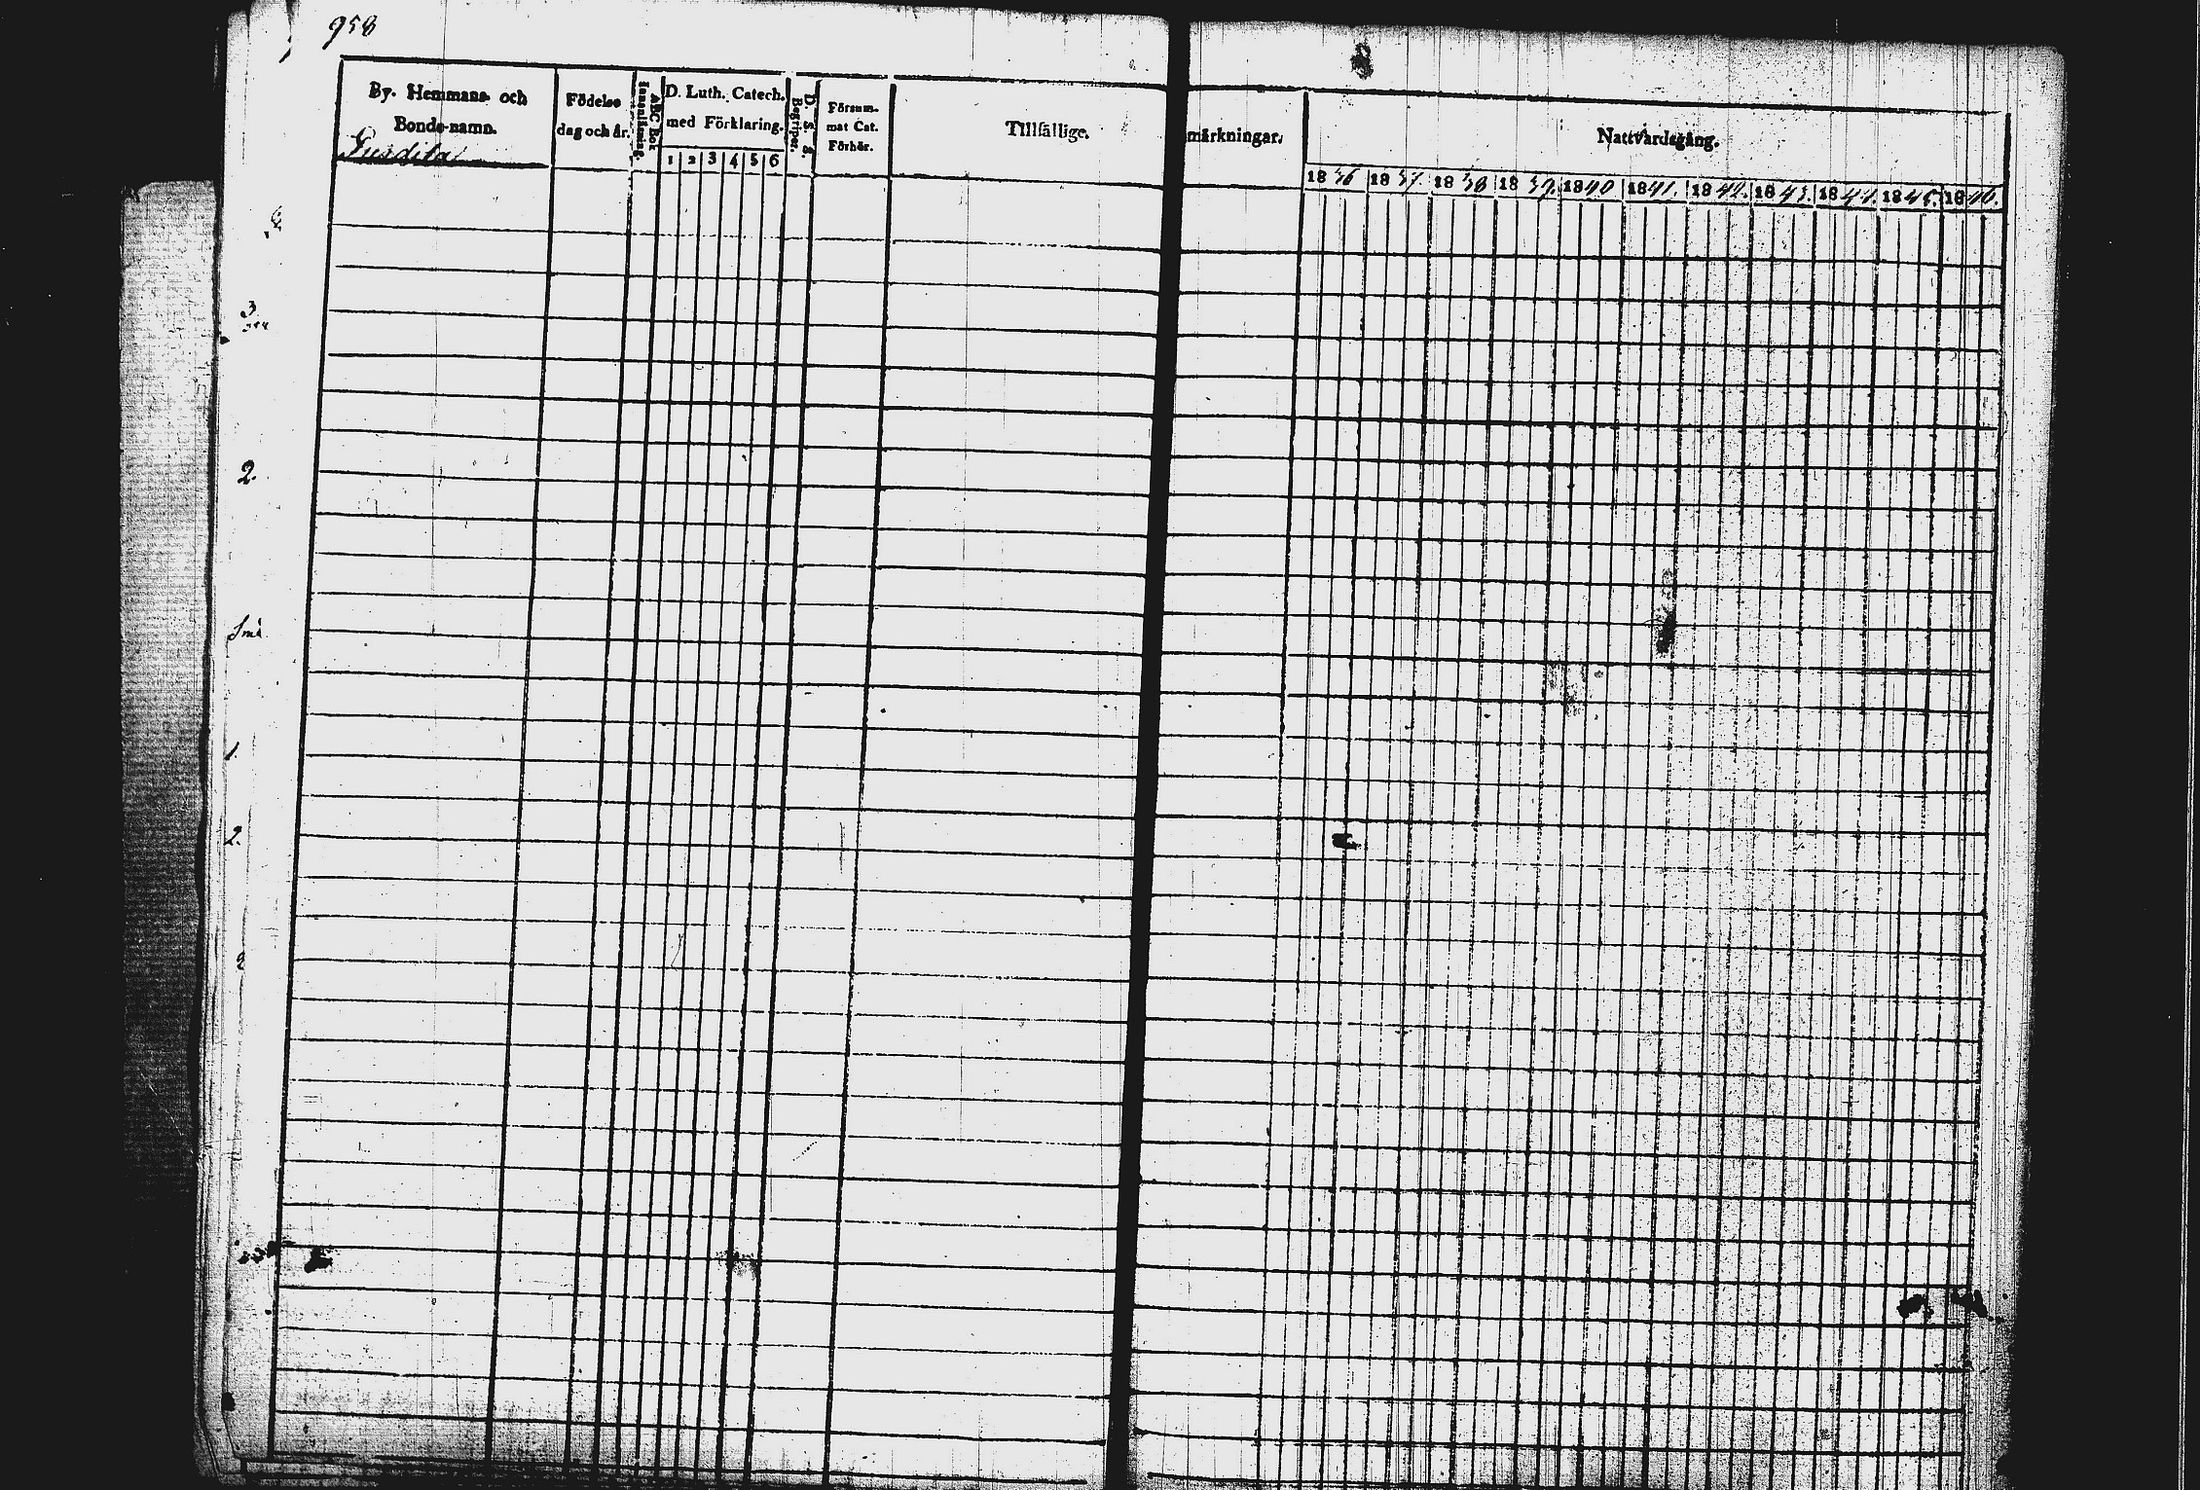 958
By. Hemmans- och
Bonde-namn.
Födelse
dag och år.
ABC Bok
Innanläsning.
D. Luth. Catech.
med Förklaring.
1 2 3 4 5 6
D. S. S.
Begriper.
Försum-
mat Cat.
Förhör.
Tillfällige.
märkningar.
Nattvardsgång.
1836 1837. 1838 1839. 1840 1841. 1842. 1843. 1844. 1845. 1846.
3
2.
Små
1.
2.